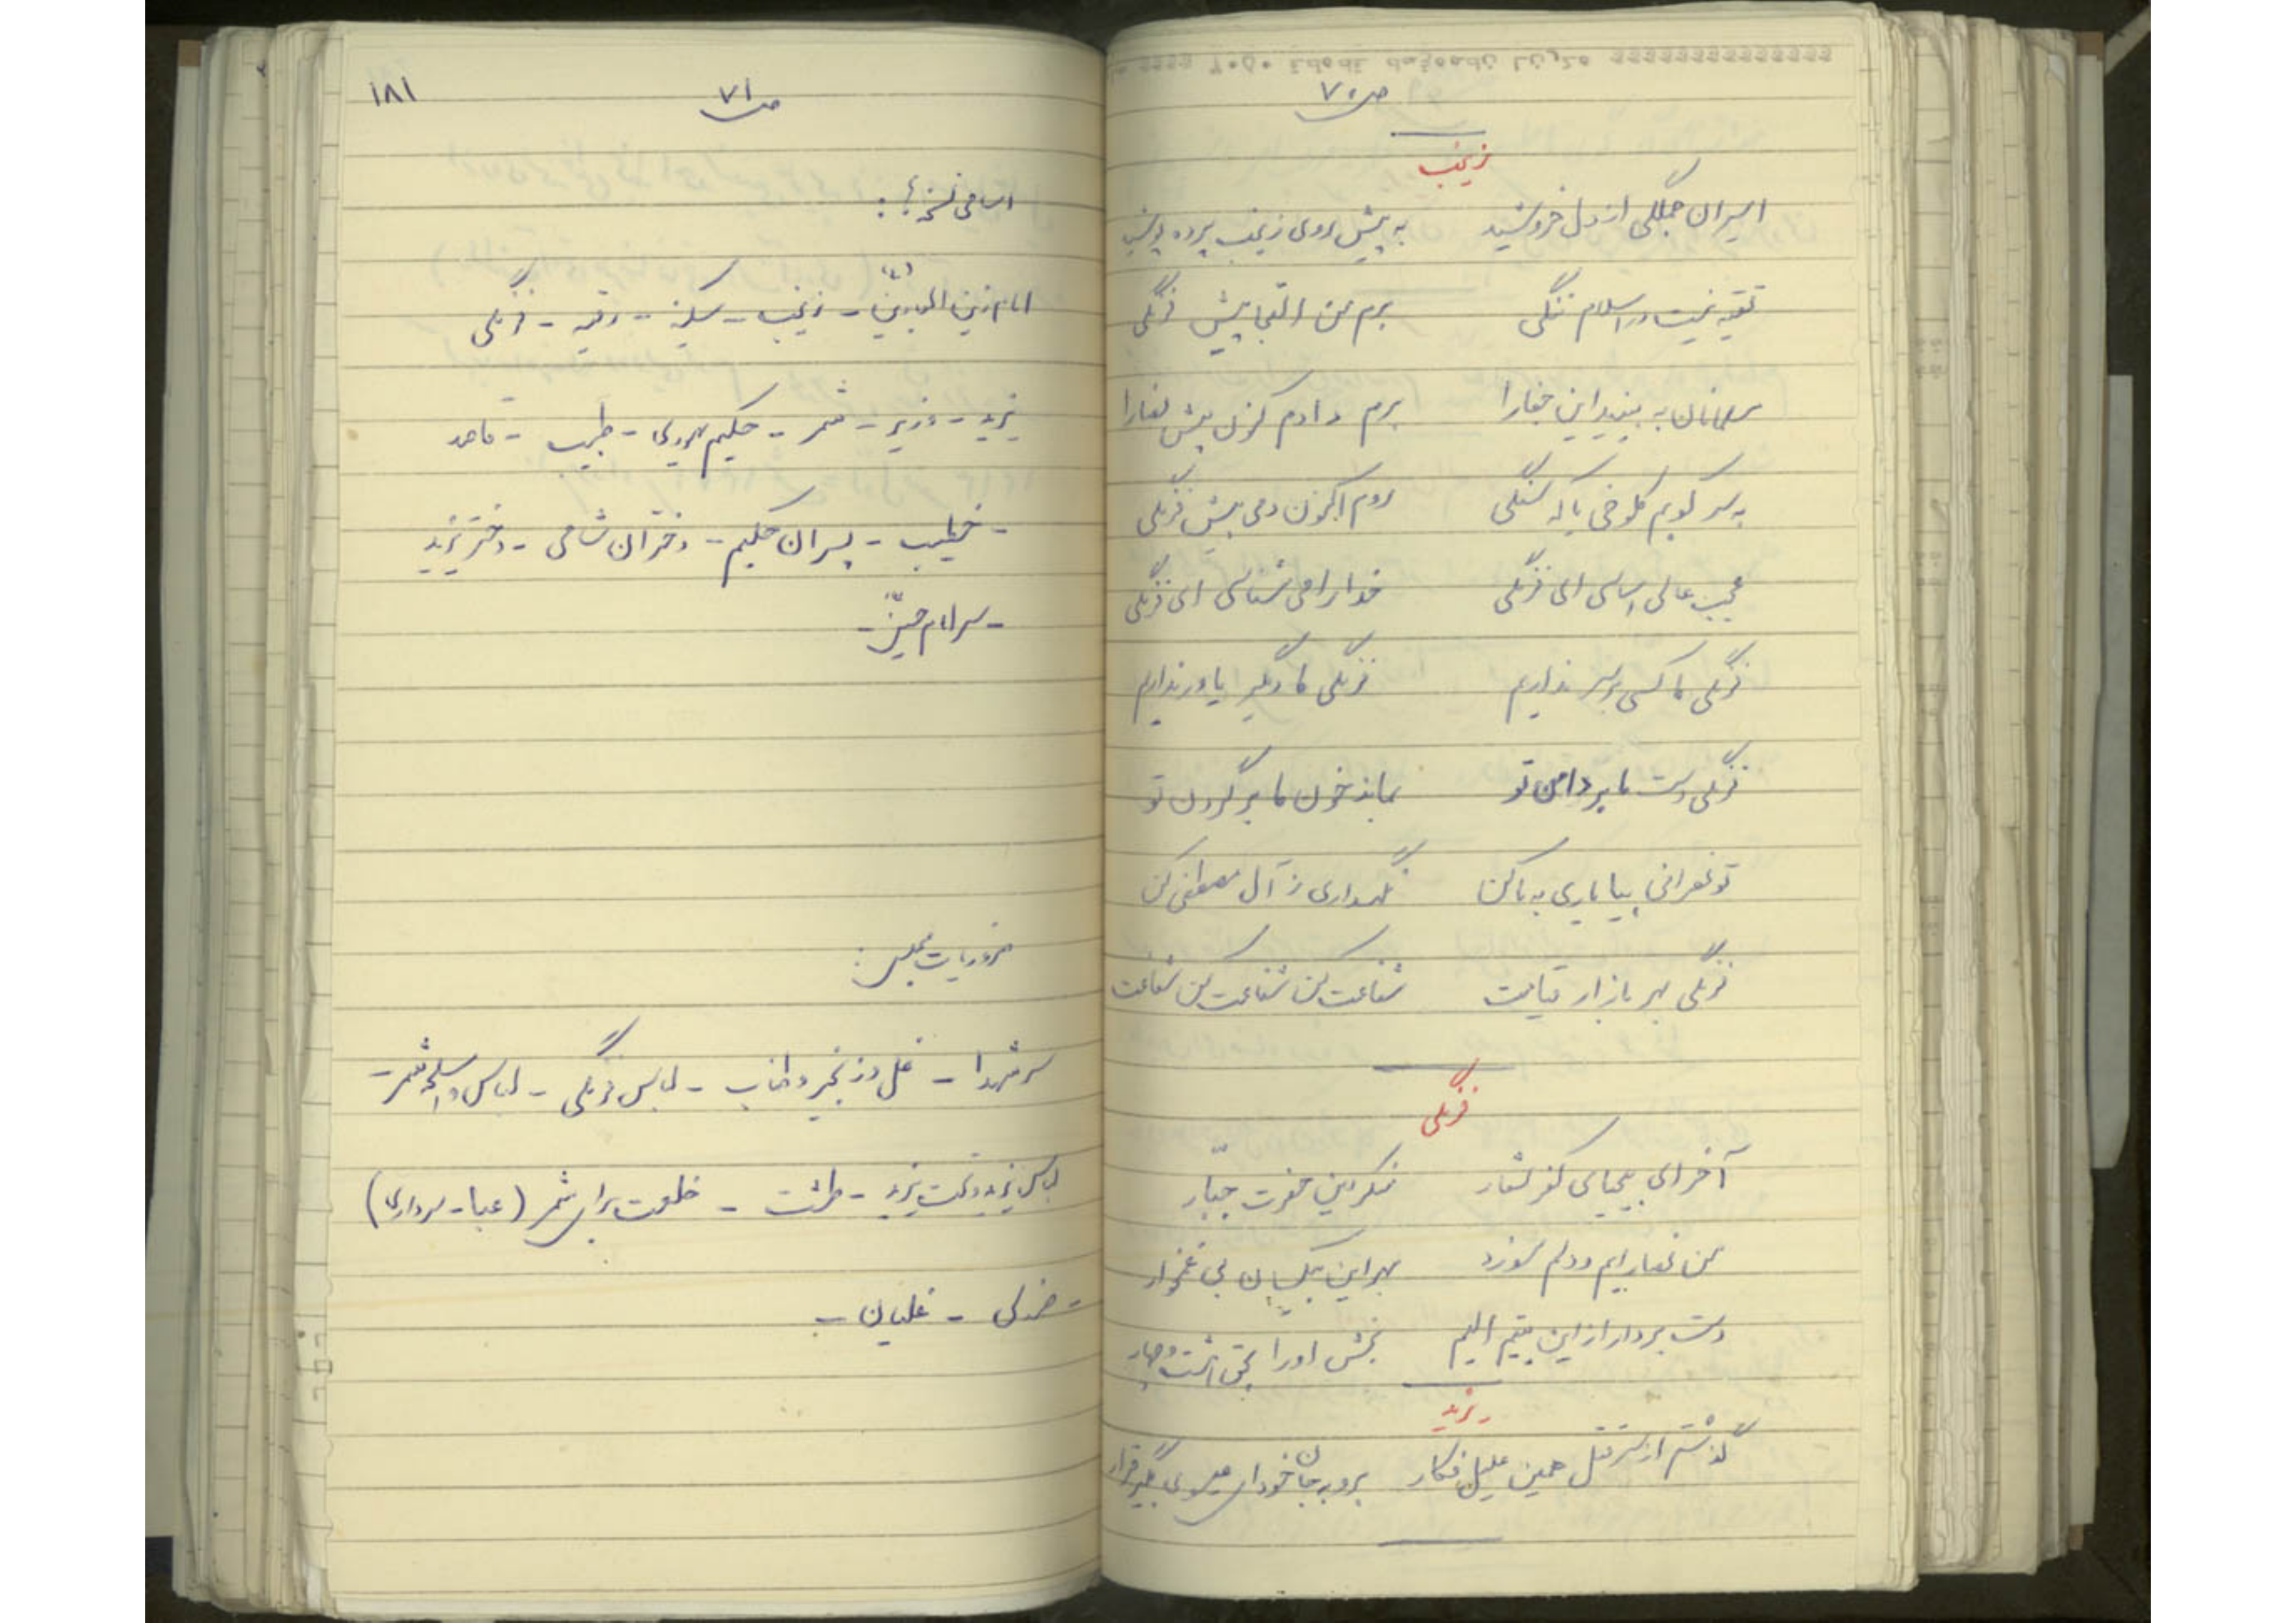 ص ۷۰
زینب
اسیران جملگی از دل خروشید به پیش روی زینب پرده پوشید
تقیه نیست در اسلام ننگی برم من التجا پیش فرنگی
مسلمانان به بینید این جفا را برم دادم کنون پیش نصارا
به سر کوبم کلوخی یا که سنگی روم اکنون دمی پیش فرنگی
عجب عالی اساسی ای فرنگی خدا را می شناسی ای فرنگی
فرنگی ما کسی بر سر نداریم فرنگی ما دگر یاور نداریم
فرنگی دست ما بر دامن تو بماند خون ما بر گردن تو
تو نصرانی بیا یاری به ما کن نگهداری ز آل مصطفی کن
فرنگی بهر بازار قیامت شفاعت کن شفاعت کن شفاعت
فرنگی
آخر ای بیحیای کفر شعار منکر دین حضرت جبّار
من نصارایم و دلم سوزد بهر این بیکسان بی غمخوار
دست بردار از این یتیم الیم بخش او را بحق هشت و چهار
یزید
گذشتم از سر قتل همین علیل فکار برو بجان خود ای عیسوی بگیر قرار
۱۸۱
ص ۷۱
اسامی نسخه ها :
امام زین العابدین (ع) - زینب - سکینه - رقیه - فرنگی
یزید - وزیر - شمر - حکیم یهودی - طبیب - قاصد
- خطیب - پسران حکیم - دختران شامی - دختر یزید
- سر امام حسین -
ضروریات مجلس :
سر شهدا - غل و زنجیر و طناب - لباس فرنگی - لباس و اسلحه شمر -
لباس یزید و تخت یزید - طشت - خلعت برای شمر (عبا - سرداری)
- صندلی - غلیان -